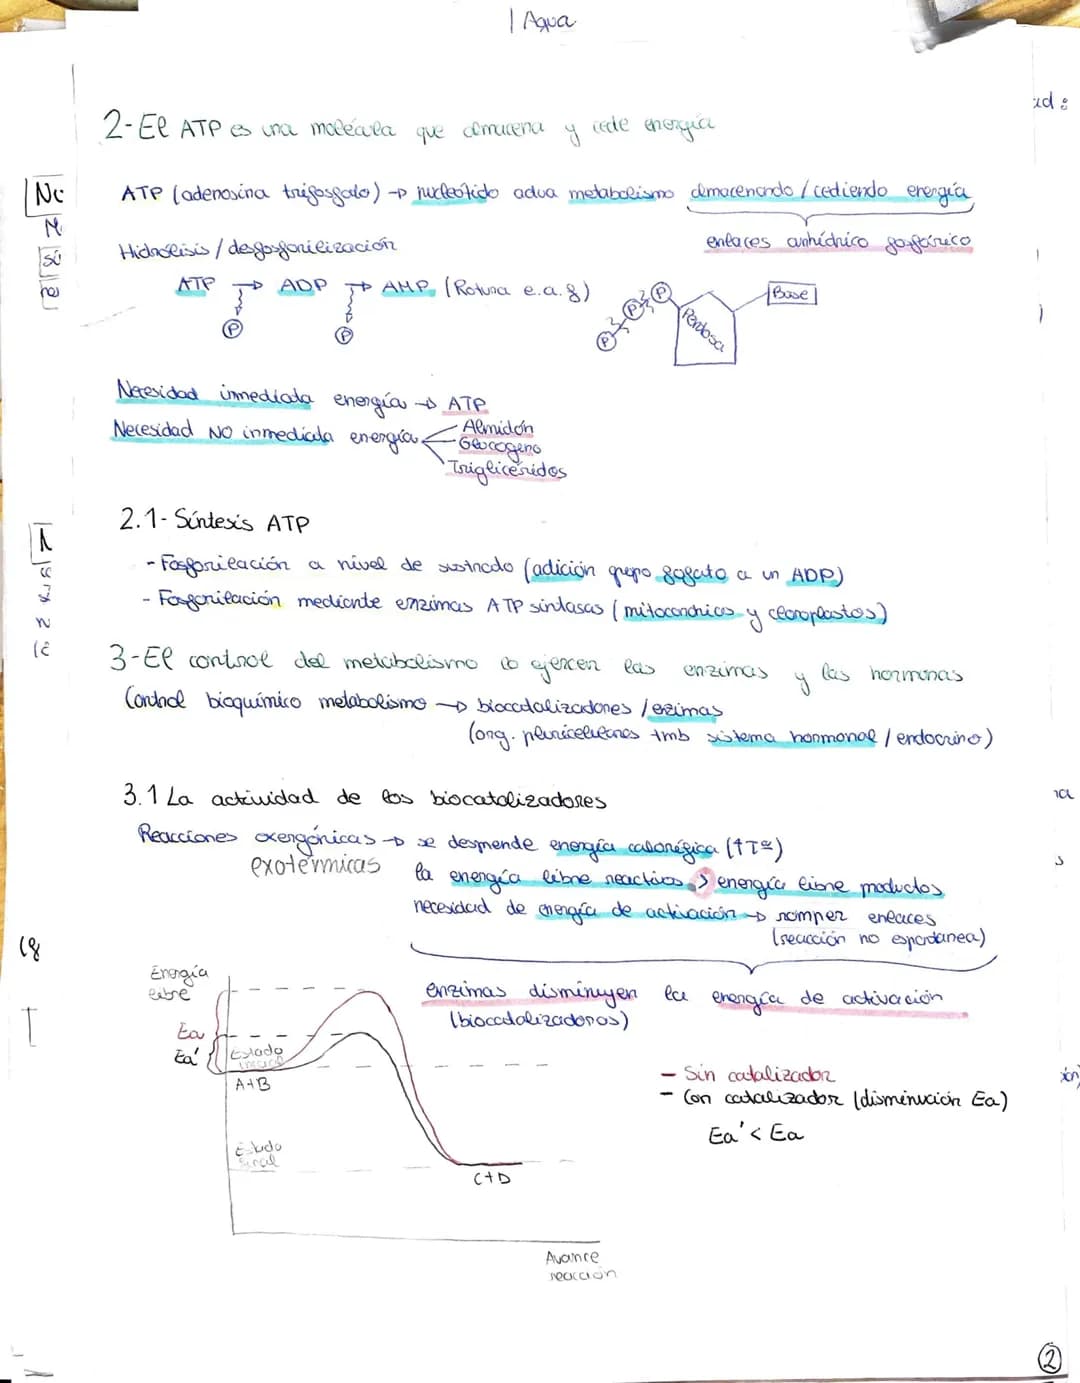 1 Agua
2-El ATP es una molécula que almacena y cede energía
ATP (adenosina trifosfato) → nucleótido actua metabolismo almacenando / cediendo energía
enlaces anhídrico fosfórico
Hidrólisis / desfosforilización
ATP → ADP → AMP (Rotura e.a.f)
P P
P P P Pentosa Base
Necesidad inmediata energía → ATP
Necesidad NO inmediata energía
Almidón
Glucogeno
Triglicéridos
2.1- Síntesis ATP
- Fosforilación a nivel de sustrado (adición grupo fosfato a un ADP)
- Fosforilación mediante enzimas ATP sintasas (mitocondrias y cloroplastos)
3-El control del metabolismo lo ejercen las enzimas y las hormonas
Control bioquímico metabolismo → biocatalizadores / ezimas
(org. pluricelulares tmb sistema hormonal / endocrino)
3.1 La actividad de los biocatalizadores
Reacciones exergónicas → se desprende energía calorífica (↑Tª)
exotérmicas
la energía libre reactivos > energía libre productos
necesidad de energía de activación → romper enlaces
(reacción no espontanea)
enzimas disminuyen la energía de activación
(biocatalizadoras)
Energía
libre
Ea
Ea'
Estado
inicial
A+B
Estado
final
C+D
Avance
reacción
- Sin catalizador
- Con catalizador (disminución Ea)
Ea' < Ea
2